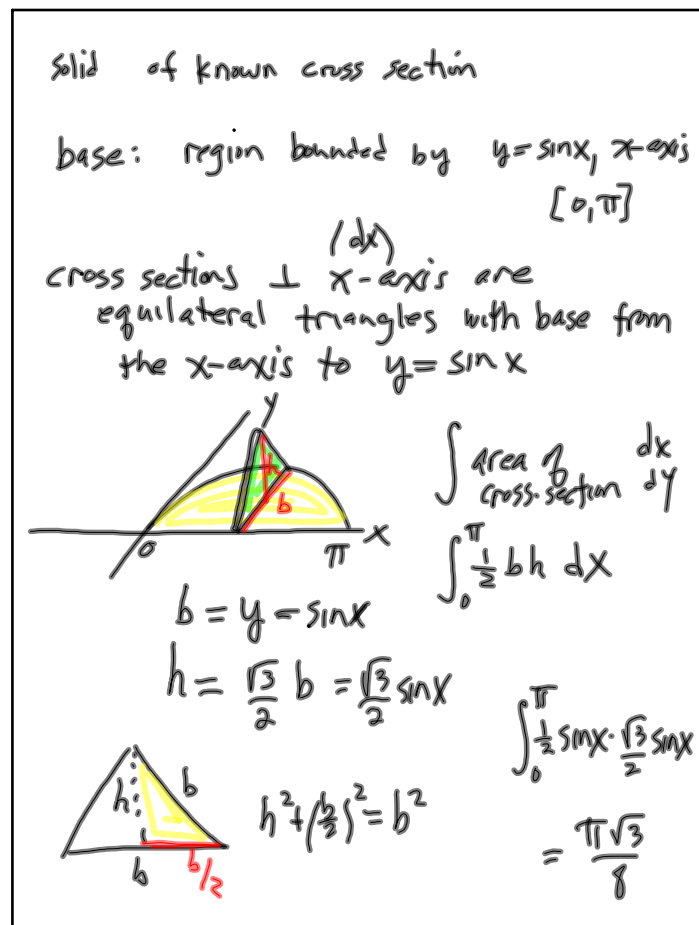 solid of known cross section
base: region bounded by y = sinx, x-axis
[0, π]
(dx)
cross sections ⊥ x-axis are
equilateral triangles with base from
the x-axis to y = sin x
y
h
b
0
π
x
∫ area of cross-section dx dy
∫₀^π ½ bh dx
b = y = sinx
h = √3/2 b = √3/2 sinx
∫₀^π ½ sinx · √3/2 sinx
h
b
b
b/2
h² + (b/2)² = b²
= π√3/8